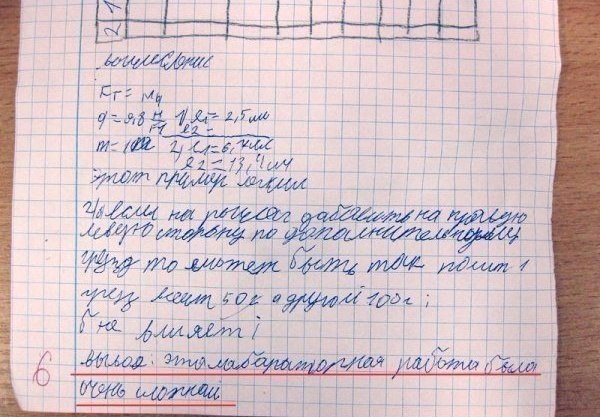 2 1
Fт = mg
g = 9,8 Н 1) l1 = 2,5 см
l2 =
l1 = 6,7 см
l2 = 13,4 см
этот пример
4) если на рычаг дабавить на правую
левую сторону по дополнительному
грузд то может быть так 1
груз весит 50г а другой 100г;
6 не влияет
6 вывод: эта лабараторная работа была
очень сложной